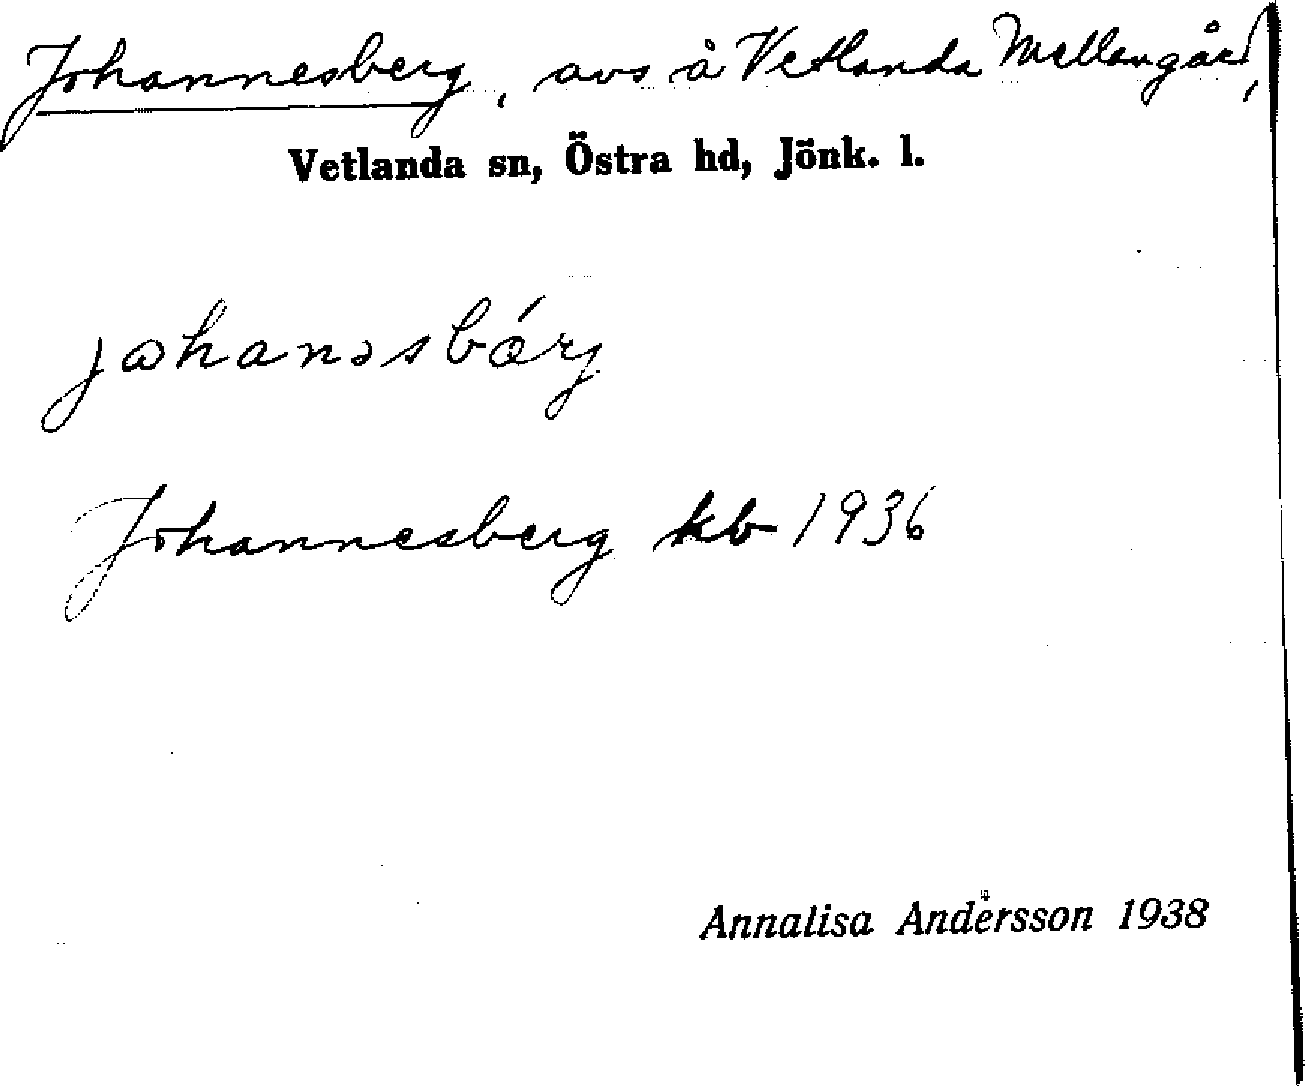 Johannesberg, avs å Vetlanda Mellangård,
Vetlanda sn, Östra hd, Jönk. l.
johanəsbærj
Johannesberg kb 1936
Annalisa Andersson 1938